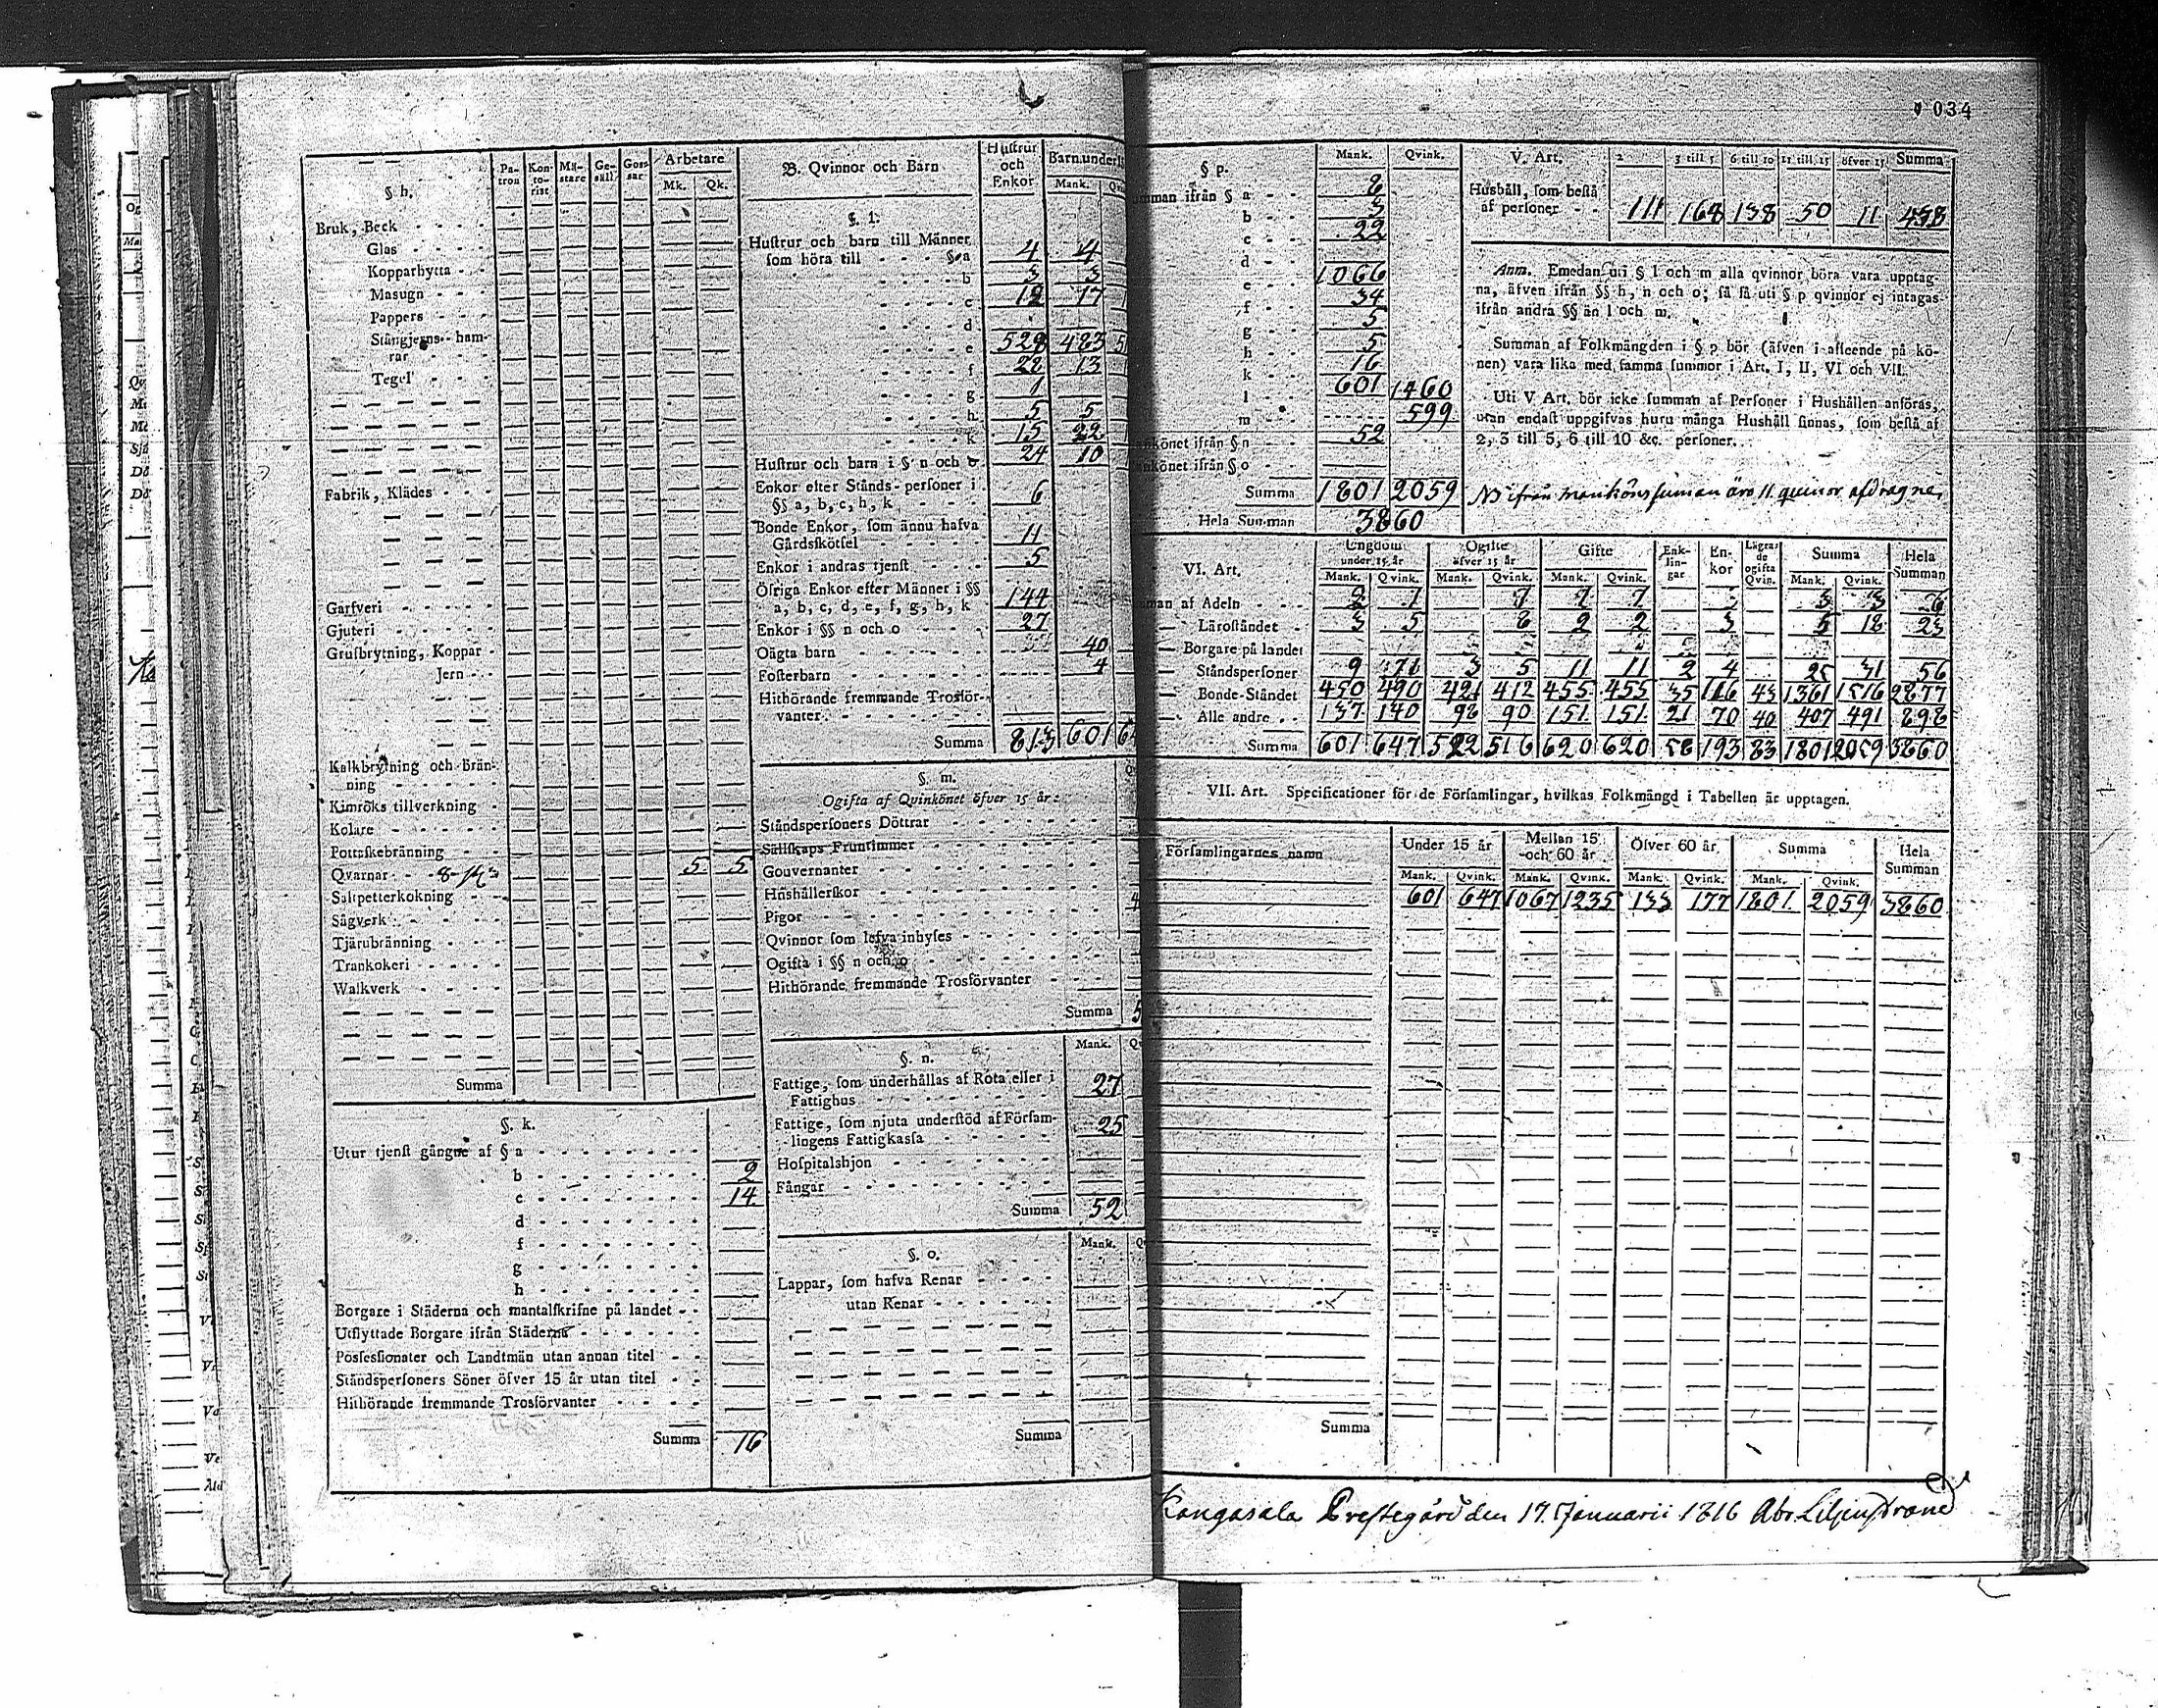 034
§ h.
Pa-tron Kon-to-rist Mä-stare Ge-säll Gos-sar Arbetare
Mk. Qk.
Bruk, Beck
Glas
Kopparhytta
Masugn
Pappers
Stångjerns-ham-
rar
Tegel
Fabrik, Klädes
Garfveri
Gjuteri
Grufbrytning, Koppar
Jern
Kalkbrytning och brän-
ning
Kimröks tillverkning
Kolare
Pottaskebränning
Qvarnar 8 5 5
Saltpetterkokning
Sågverk
Tjärubränning
Trankokeri
Walkverk
Summa
§. k.
Utur tjenst gångne af § a
b 2
c 14
d
f
g
h
Borgare i Städerna och mantalskrifne på landet
Utflyttade Borgare ifrån Städerna
Possessionater och Landtmän utan annan titel
Ståndspersoners Söner öfver 15 år utan titel
Hithörande fremmande Trosförvanter
Summa 16
B. Qvinnor och Barn
Hustrur och Enkor
Barn under
Mank.
§. l.
Hustrur och barn till Männer
som höra till § a 4 4
b 3 3
c 12 17
d
e 528 483
f 22 13
g 1
h 5 5
k 15 22
Hustrur och barn i § n och o 24 10
Enkor efter Stånds-personer i
§§ a, b, c, h, k 6
Bonde Enkor, som ännu hafva
Gårdsskötsel 11
Enkor i andras tjenst 5
Öfriga Enkor efter Männer i §§
a, b, c, d, e, f, g, h, k 144
Enkor i §§ n och o 27
Oägta barn 40
Fosterbarn 4
Hithörande fremmande Trosför-
vanter
Summa 813 601
§. m.
Ogifta af Qvinkönet öfver 15 år:
Ståndspersoners Döttrar
Sällskaps Fruntimmer
Gouvernanter
Hushållerskor
Pigor
Qvinnor som lefva inhyses
Ogifta i §§ n och o
Hithörande fremmande Trosförvanter
Summa
§. n.
Mank.
Fattige, som underhållas af Rota eller i
Fattighus 27
Fattige, som njuta understöd af Försam-
lingens Fattigkassa 25
Hospitalshjon
Fångar
Summa 52
§. o.
Mank.
Lappar, som hafva Renar
utan Renar
Summa
§ p.
Mank. Qvink.
ifrån § a 8
b 3
c 22
d
e 1066
f 34
g 5
h 5
k 16
l 601 1460
m 599
könet ifrån § n 52
könet ifrån § o
Summa 1801 2059
Hela Summan 3860
V. Art. 2 3 till 5 6 till 10 11 till 15 öfver 15 Summa
Hushåll, som bestå
af personer 111 168 138 50 11
Anm. Emedan uti § l och m alla qvinnor böra vara upptag-
na, äfven ifrån §§ h, n och o; så få uti § p qvinnor ej intagas
ifrån andra §§ än l och m.
Summan af Folkmängden i § p bör (äfven i afseende på kö-
nen) vara lika med samma summor i Art. I, II, VI och VII.
Uti V Art. bör icke summan af Personer i Hushållen anföras,
utan endast uppgifvas huru många Hushåll finnas, som bestå af
2, 3 till 5, 6 till 10 &c. personer.
NB ifrån mankönssuman äro 11 quinor afdragne,
VI. Art.
Ungdom under 15 år Ogifte öfver 15 år Gifte Enk-lin-gar En-kor Lägrade ogifta Qvin. Summa Hela Summan
Mank. Qvink. Mank. Qvink. Mank. Qvink. Mank. Qvink.
af Adeln 2 1 1 1 1 3 3 6
Läroståndet 3 5 8 2 2 3 5 18 23
Borgare på landet
Ståndspersoner 9 11 3 5 11 11 2 4 25 31 56
Bonde-Ståndet 450 490 421 412 455 455 35 116 43 1361 1516 2877
Alle andre 137 140 98 90 151 151 21 70 40 407 491 898
Summa 601 647 522 516 620 620 58 193 83 1801 2059 3860
VII. Art. Specificationer för de Församlingar, hvilkas Folkmängd i Tabellen är upptagen.
Församlingarnes namn
Under 15 år Mellan 15 och 60 år Öfver 60 år Summa Hela Summan
Mank. Qvink. Mank. Qvink. Mank. Qvink. Mank. Qvink.
601 647 1067 1235 133 177 1801 2059 3860
Summa
Kangasala Prestegård den 17 Januarii 1816 Abr. Liljenstrand